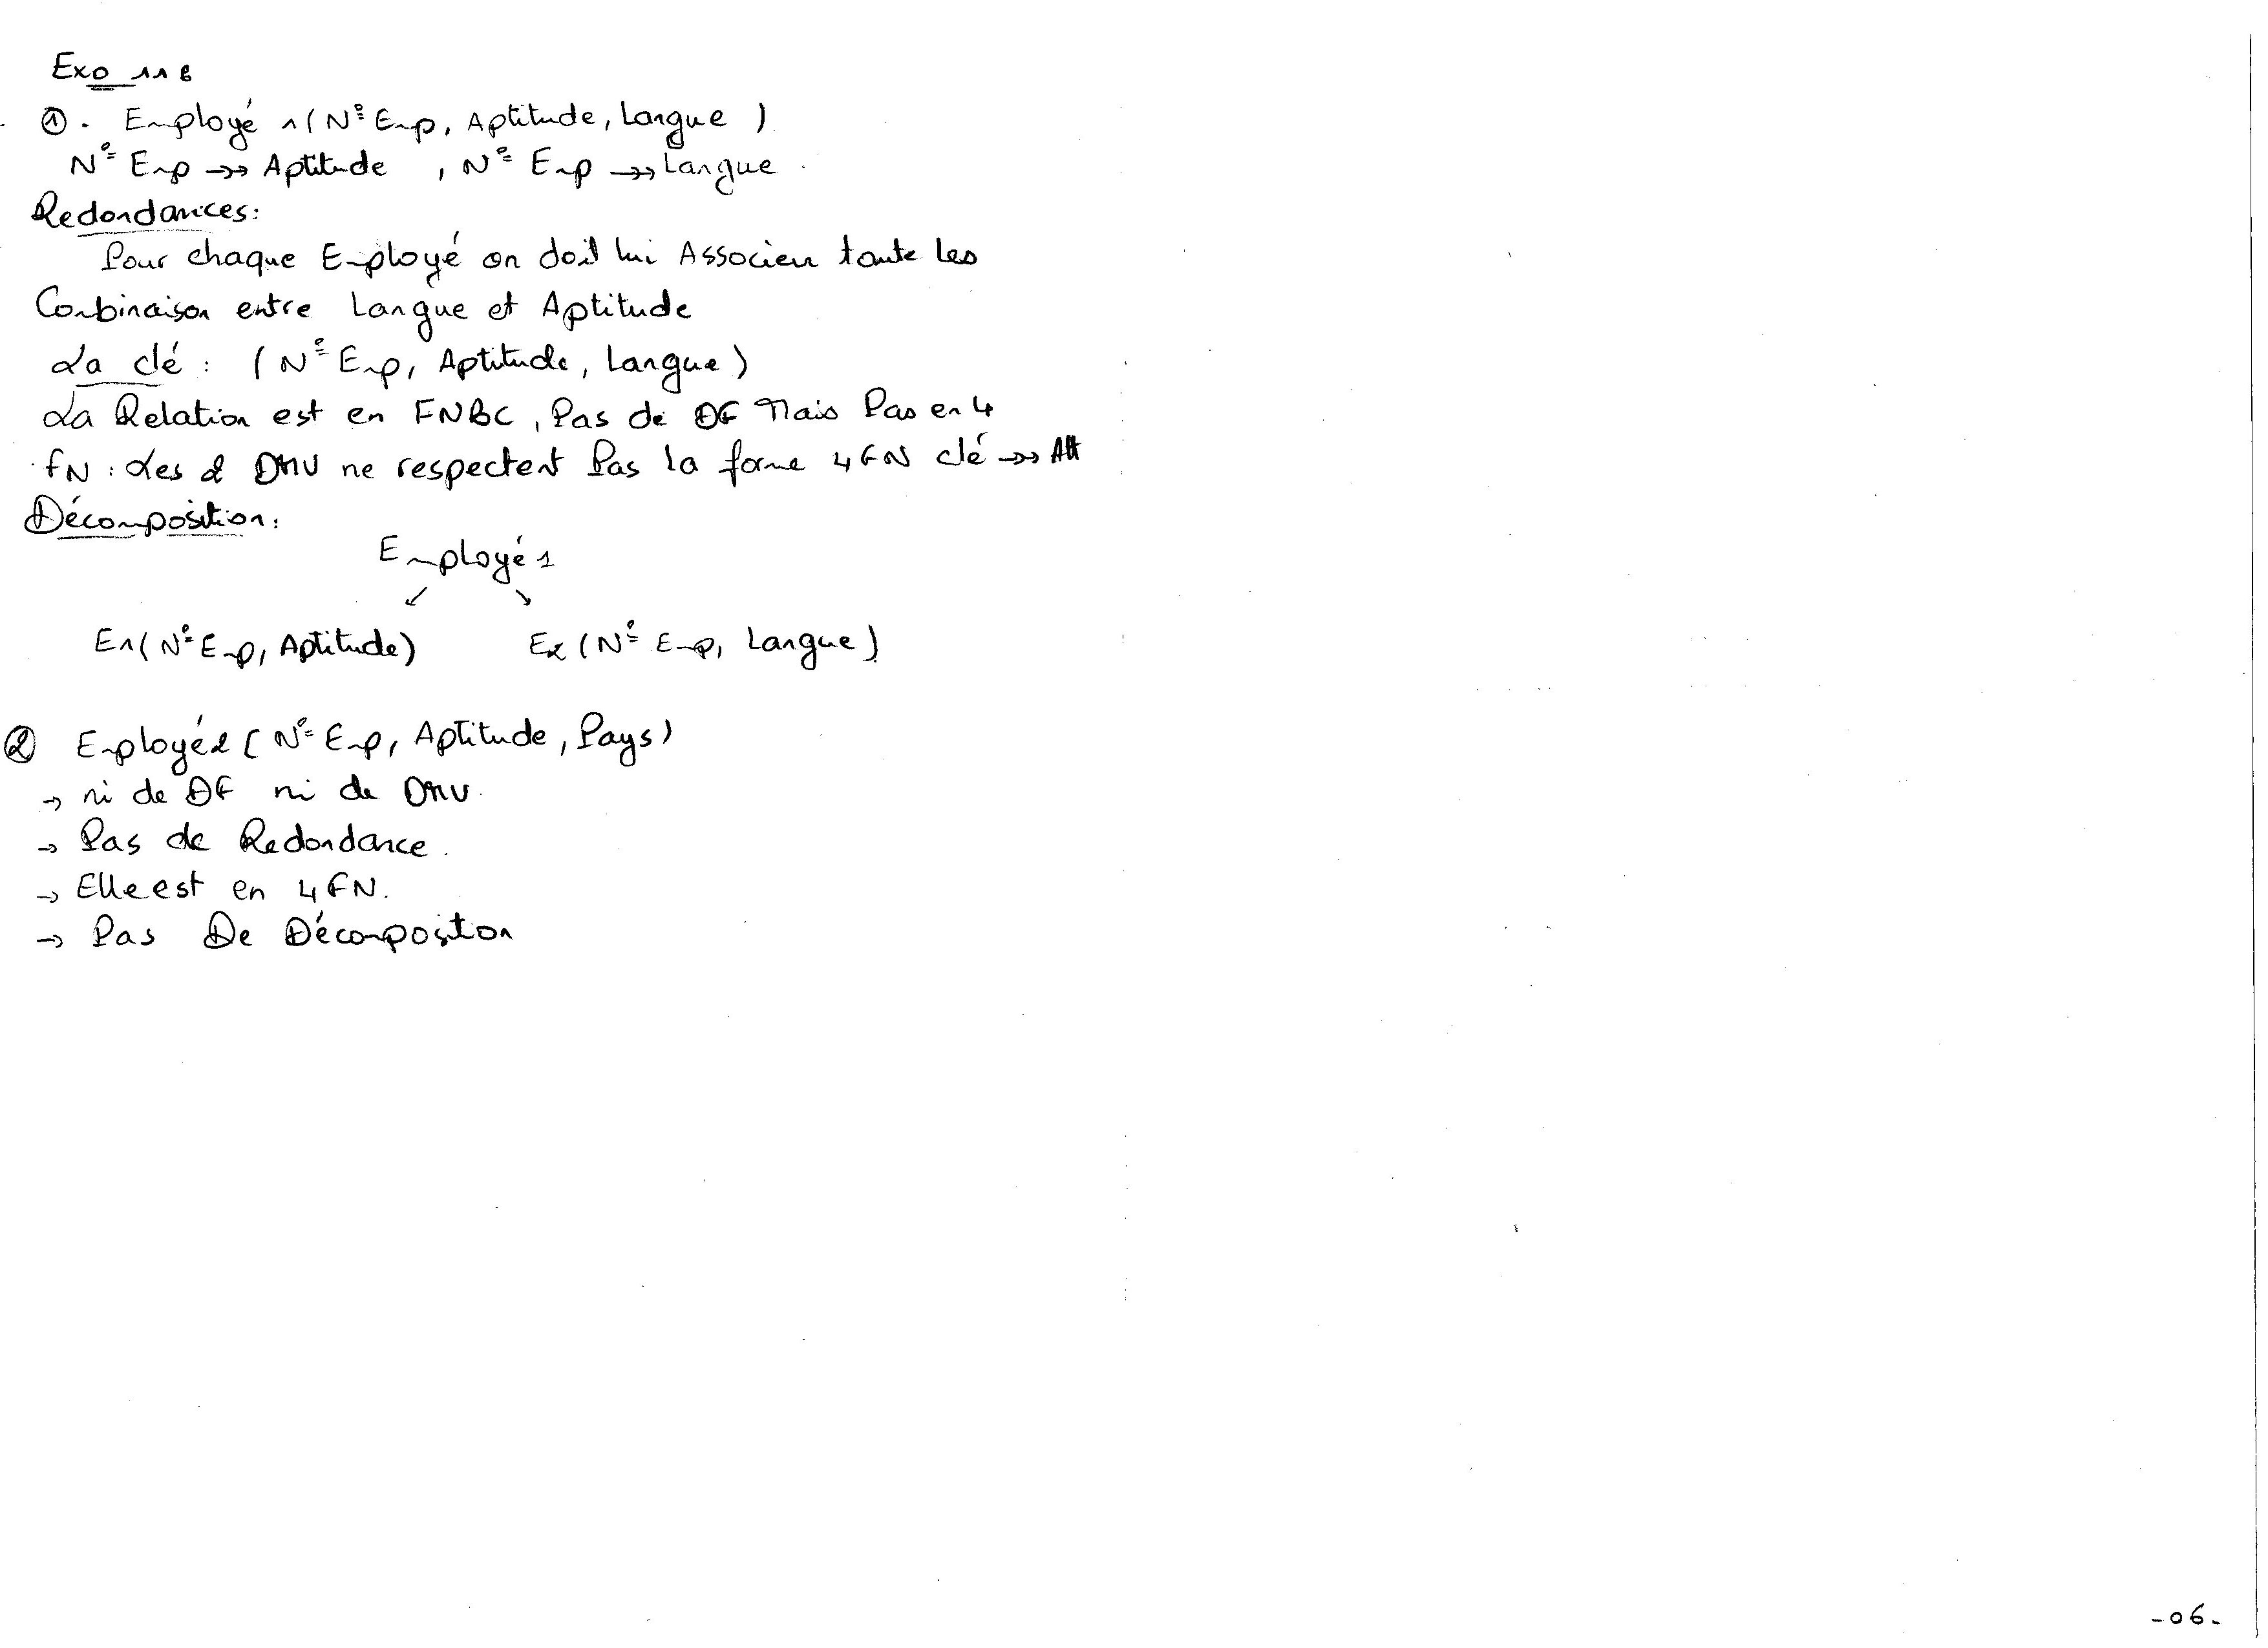 Exo 11 :
① . Employé 1 (N° Emp, Aptitude, Langue )
N° Emp →→ Aptitude , N° Emp →→ Langue .
Redondances:
Pour chaque Employé on doit lui Associer toute les
Combinaison entre Langue et Aptitude
La clé : (N° Emp, Aptitude, Langue)
La Relation est en FNBC, Pas de DF Mais Pas en 4
FN : Les 2 DMV ne respectent Pas la forme 4FN clé →→ Att
Décomposition:
Employé 1
↙ ↘
E1(N° Emp, Aptitude) E2 (N° Emp, Langue)
② Employé2 (N° Emp, Aptitude, Pays)
→ ni de DF ni de DMV.
→ Pas de Redondance.
→ Elle est en 4FN.
→ Pas De Décompositon
-06-